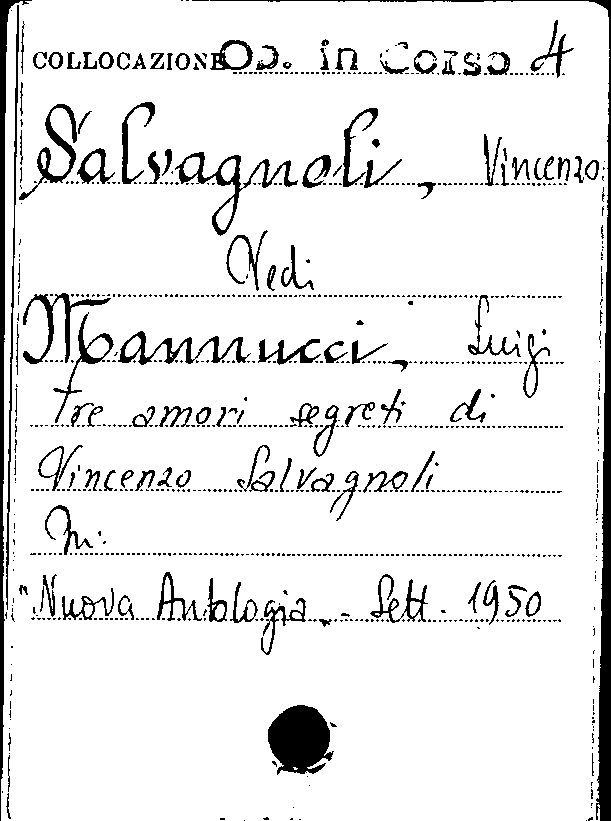 COLLOCAZIONE Op. in Corso 4
Salvagnoli, Vincenzo
Vedi
Mannucci, Luigi
Tre amori segreti di
Vincenzo Salvagnoli
In:
"Nuova Antologia.- Sett. 1950